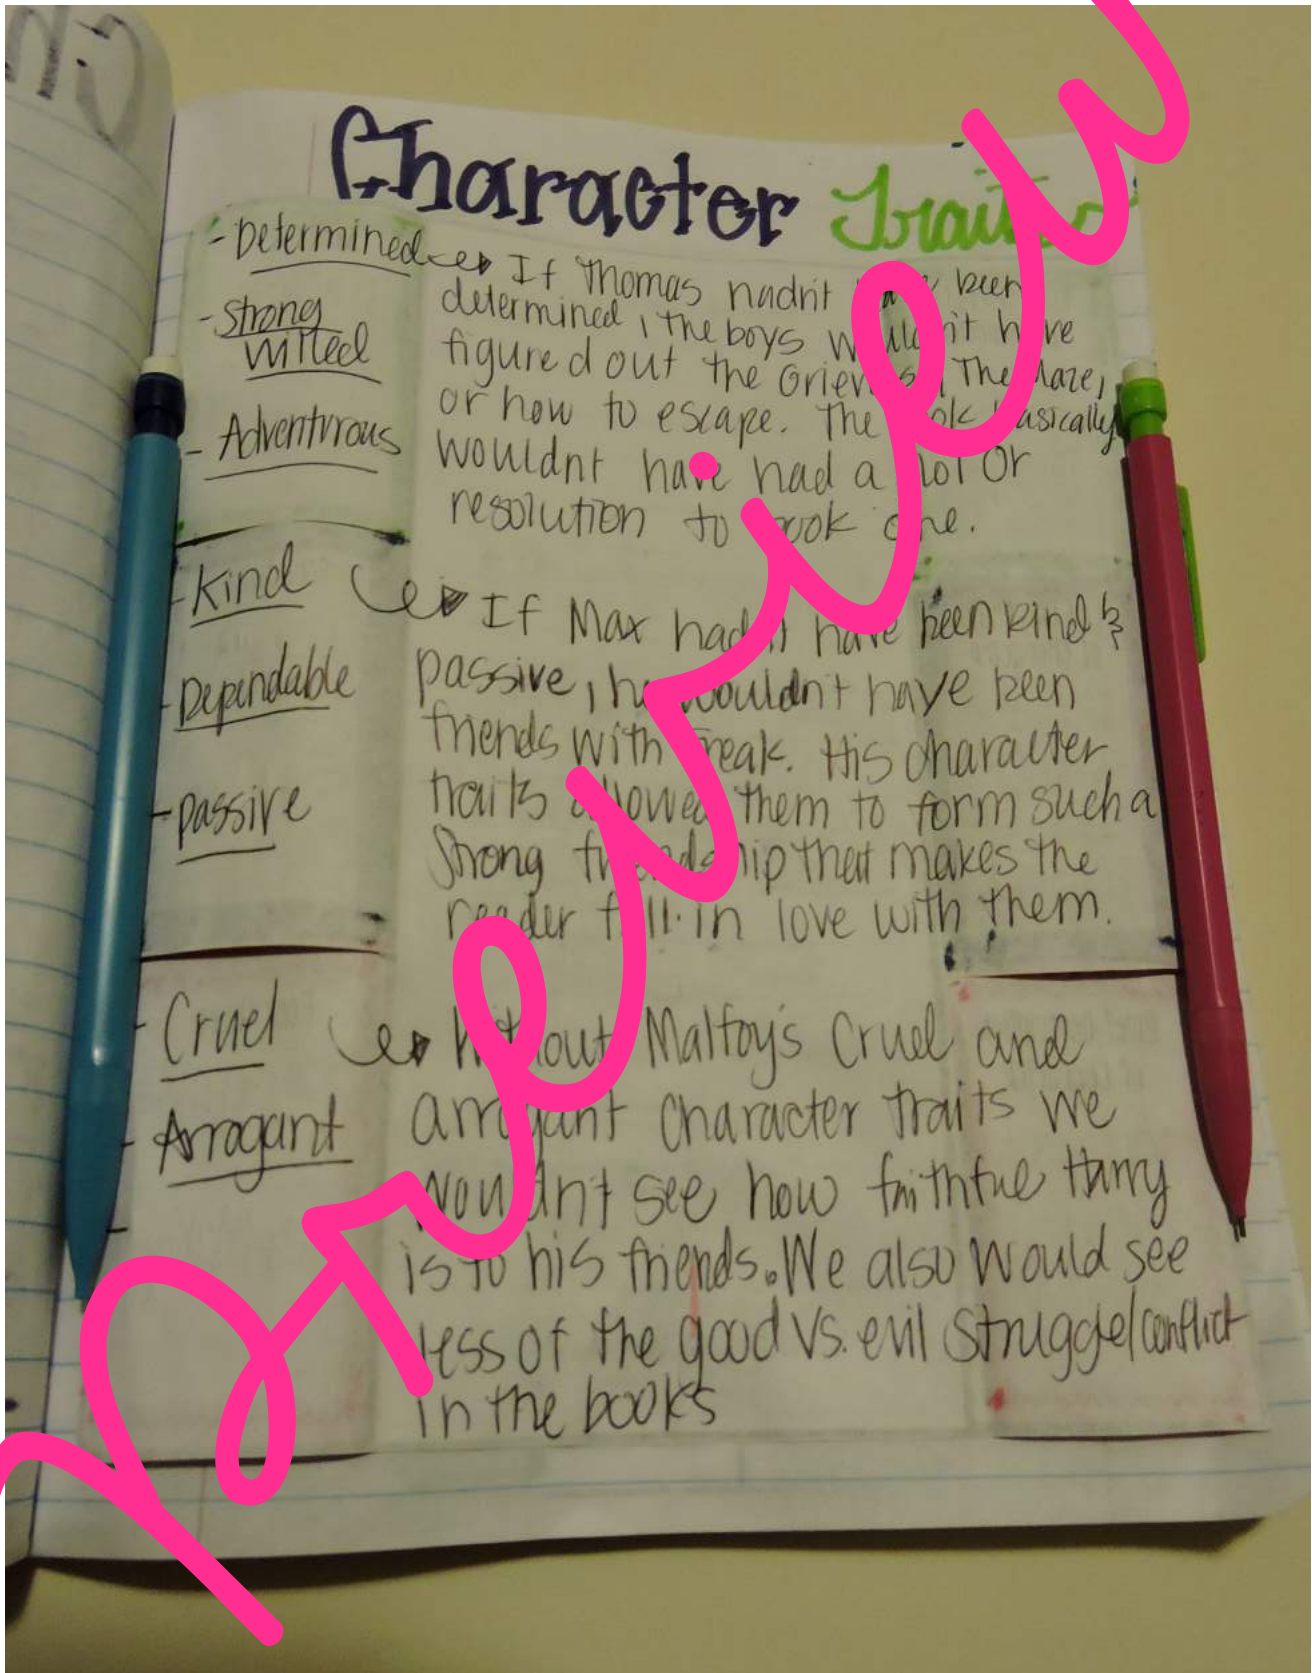 Character Traits
- Determined
- Strong
willed
- Adventurous
If Thomas hadn't have been
determined, the boys wouldn't have
figured out the Grievers, The Maze,
or how to escape. The book basically
wouldnt have had a plot or
resolution to book one.
- Kind
- Dependable
- passive
If Max hadn't have been kind &
passive, he wouldn't have been
friends with Freak. His character
traits allowed them to form such a
strong friendship that makes the
reader fall in love with them.
- Cruel
- Arrogant
-
Without Malfoy's cruel and
arrogant character traits we
wouldn't see how faithful Harry
is to his friends. We also would see
less of the good vs. evil struggle/conflict
in the books
preview